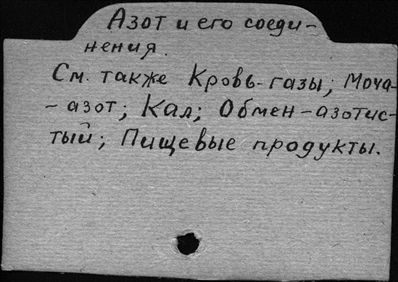 Азот и его соеди-
нения.
См. также Кровь-газы; Моча-
-азот; Кал; Обмен-азотис-
тый; Пищевые продукты.